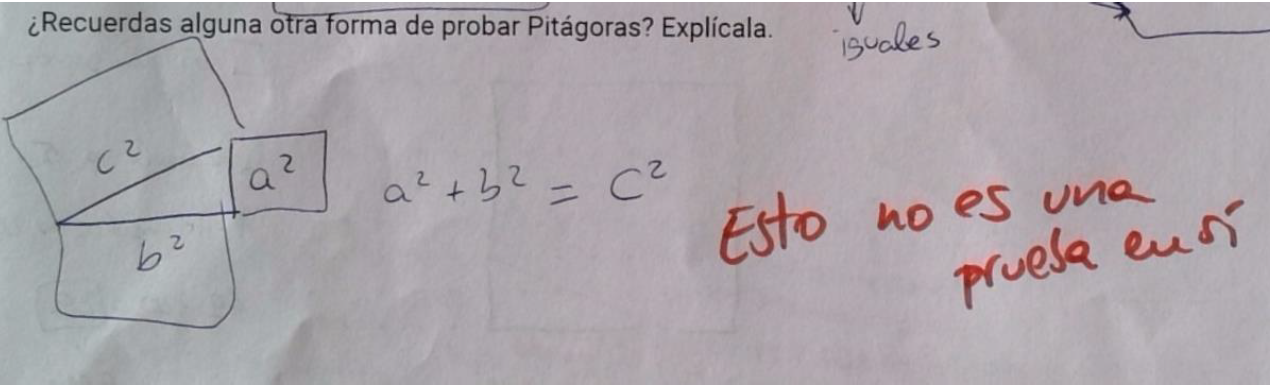 ¿Recuerdas alguna otra forma de probar Pitágoras? Explícala.
iguales
c²
a²
b²
a² + b² = c²
Esto no es una
prueba en sí